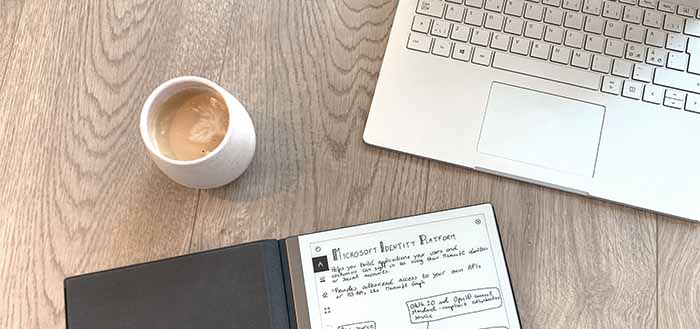 MICROSOFT IDENTITY PLATFORM
Helps you build applications your users and
customers can sign in to using their Microsoft identities
or social accounts.
- Provides authorized access to your own APIs
or MS APIs, like Microsoft Graph
OAuth 2.0 and OpenID connect
standard-compliant authentication
service